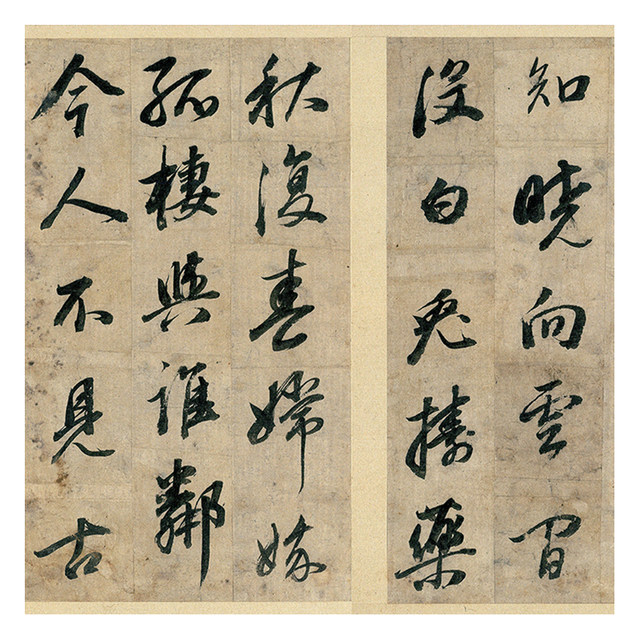 知曉向雲間
沒白兔擣藥
秋復春嫦娥
孤棲與誰鄰
今人不見古